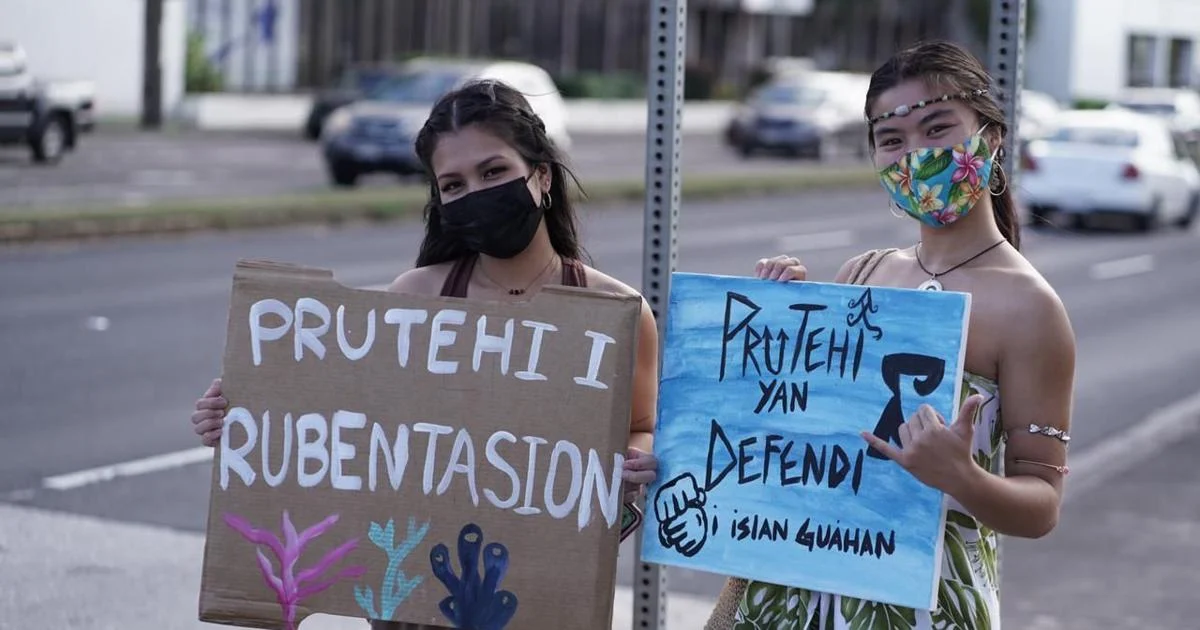 PRUTEHI I
RUBENTASION
PRUTEHI
YAN
DEFENDI
i ISlAN GUÁHAN